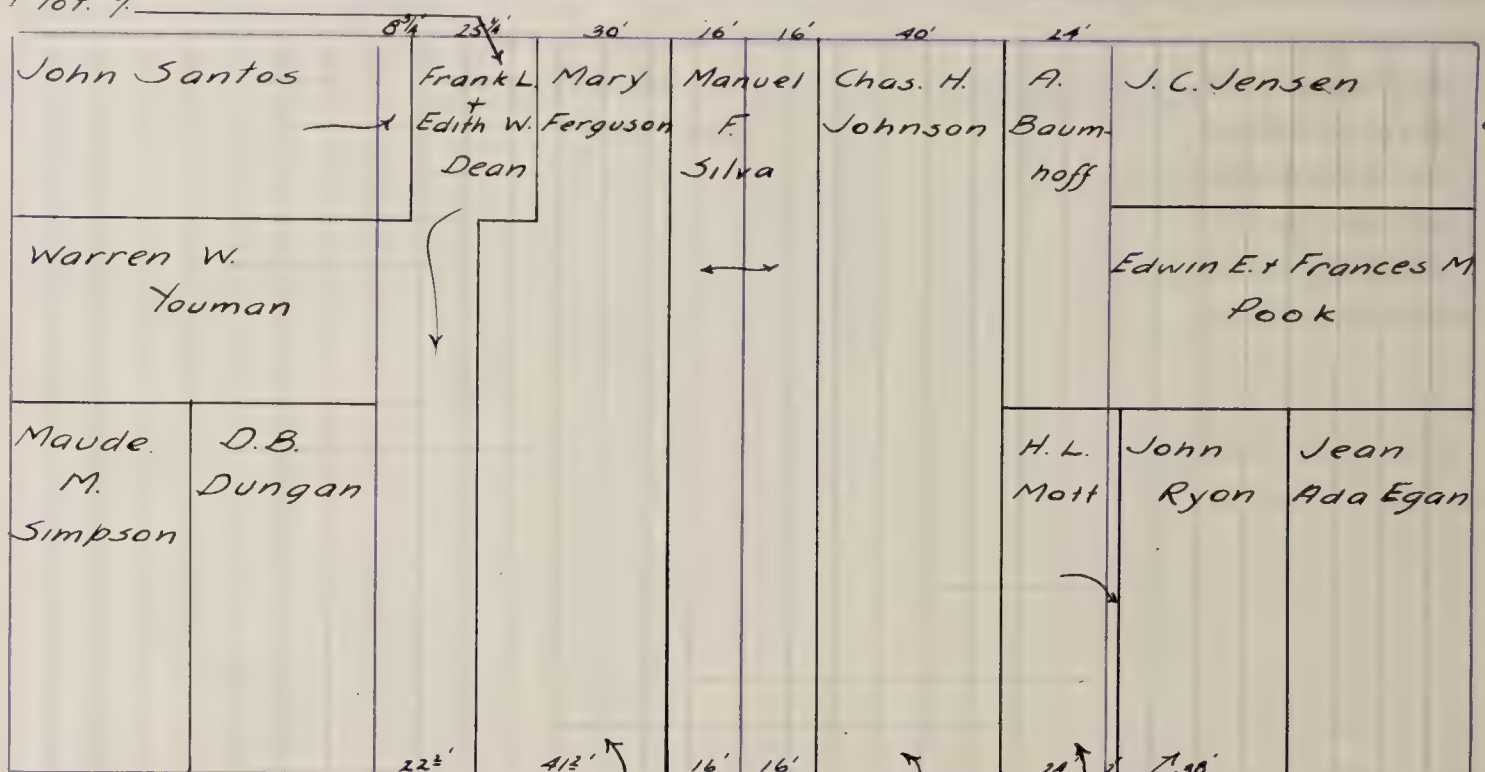 8 3/4' 25 1/4' 30' 16' 16' 40' 24'
John Santos
Frank L.
+
Edith W.
Dean
Mary
Ferguson
Manuel
F.
Silva
Chas. H.
Johnson
A.
Baum-
hoff
J. C. Jensen
Warren W.
Youman
Edwin E. + Frances M
Pook
Maude.
M.
Simpson
D.B.
Dungan
H. L.
Mott
John
Ryon
Jean
Ada Egan
22 1/2' 41 1/2' 16' 16' 24' 2' 38'